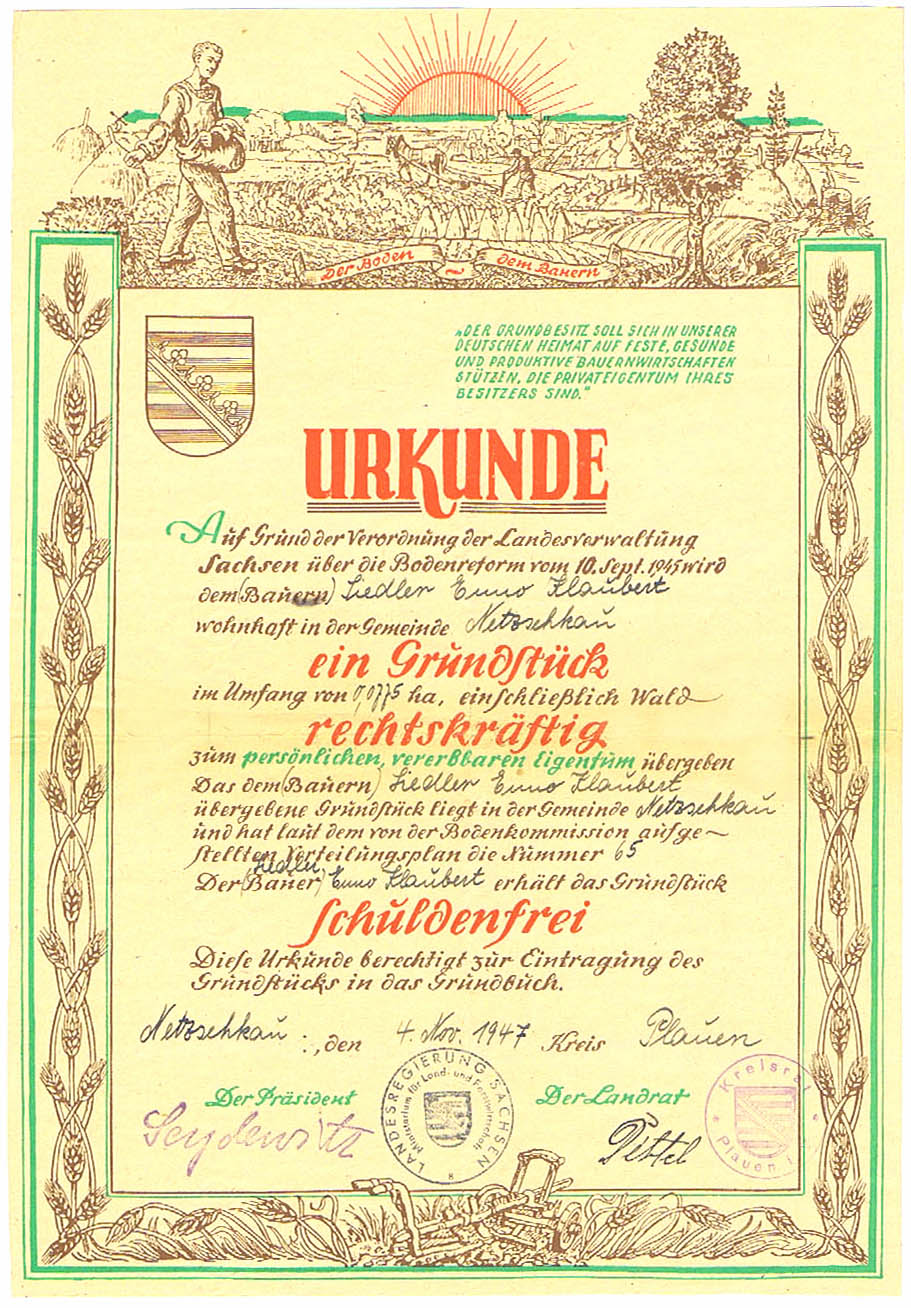 Der Boden ~ dem Bauern
„DER GRUNDBESITZ SOLL SICH IN UNSERER
DEUTSCHEN HEIMAT AUF FESTE, GESUNDE
UND PRODUKTIVE BAUERNWIRTSCHAFTEN
STÜTZEN, DIE PRIVATEIGENTUM IHRES
BESITZERS SIND."
URKUNDE
Auf Grund der Verordnung der Landesverwaltung
Sachsen über die Bodenreform vom 10. Sept. 1945 wird
dem (Bauern) Siedler Enno Klaubert
wohnhaft in der Gemeinde Netzschkau
ein Grundstück
im Umfang von 0,0775 ha, einschließlich Wald
rechtskräftig
zum persönlichen, vererbbaren Eigentum übergeben
Das dem (Bauern) Siedler Enno Klaubert
übergebene Grundstück liegt in der Gemeinde Netzschkau
und hat laut dem von der Bodenkommission aufge~
stellten Verteilungsplan die Nummer 65
Siedler
Der (Bauer) Enno Klaubert erhält das Grundstück
schuldenfrei
Diese Urkunde berechtigt zur Eintragung des
Grundstücks in das Grundbuch.
Netzschkau :, den 4. Nov. 1947 Kreis Plauen
Der Präsident
Der Landrat
Seydewitz
LANDESREGIERUNG SACHSEN
Ministerium für Land- und Forstwirtschaft
8
Kreisrat
Plauen